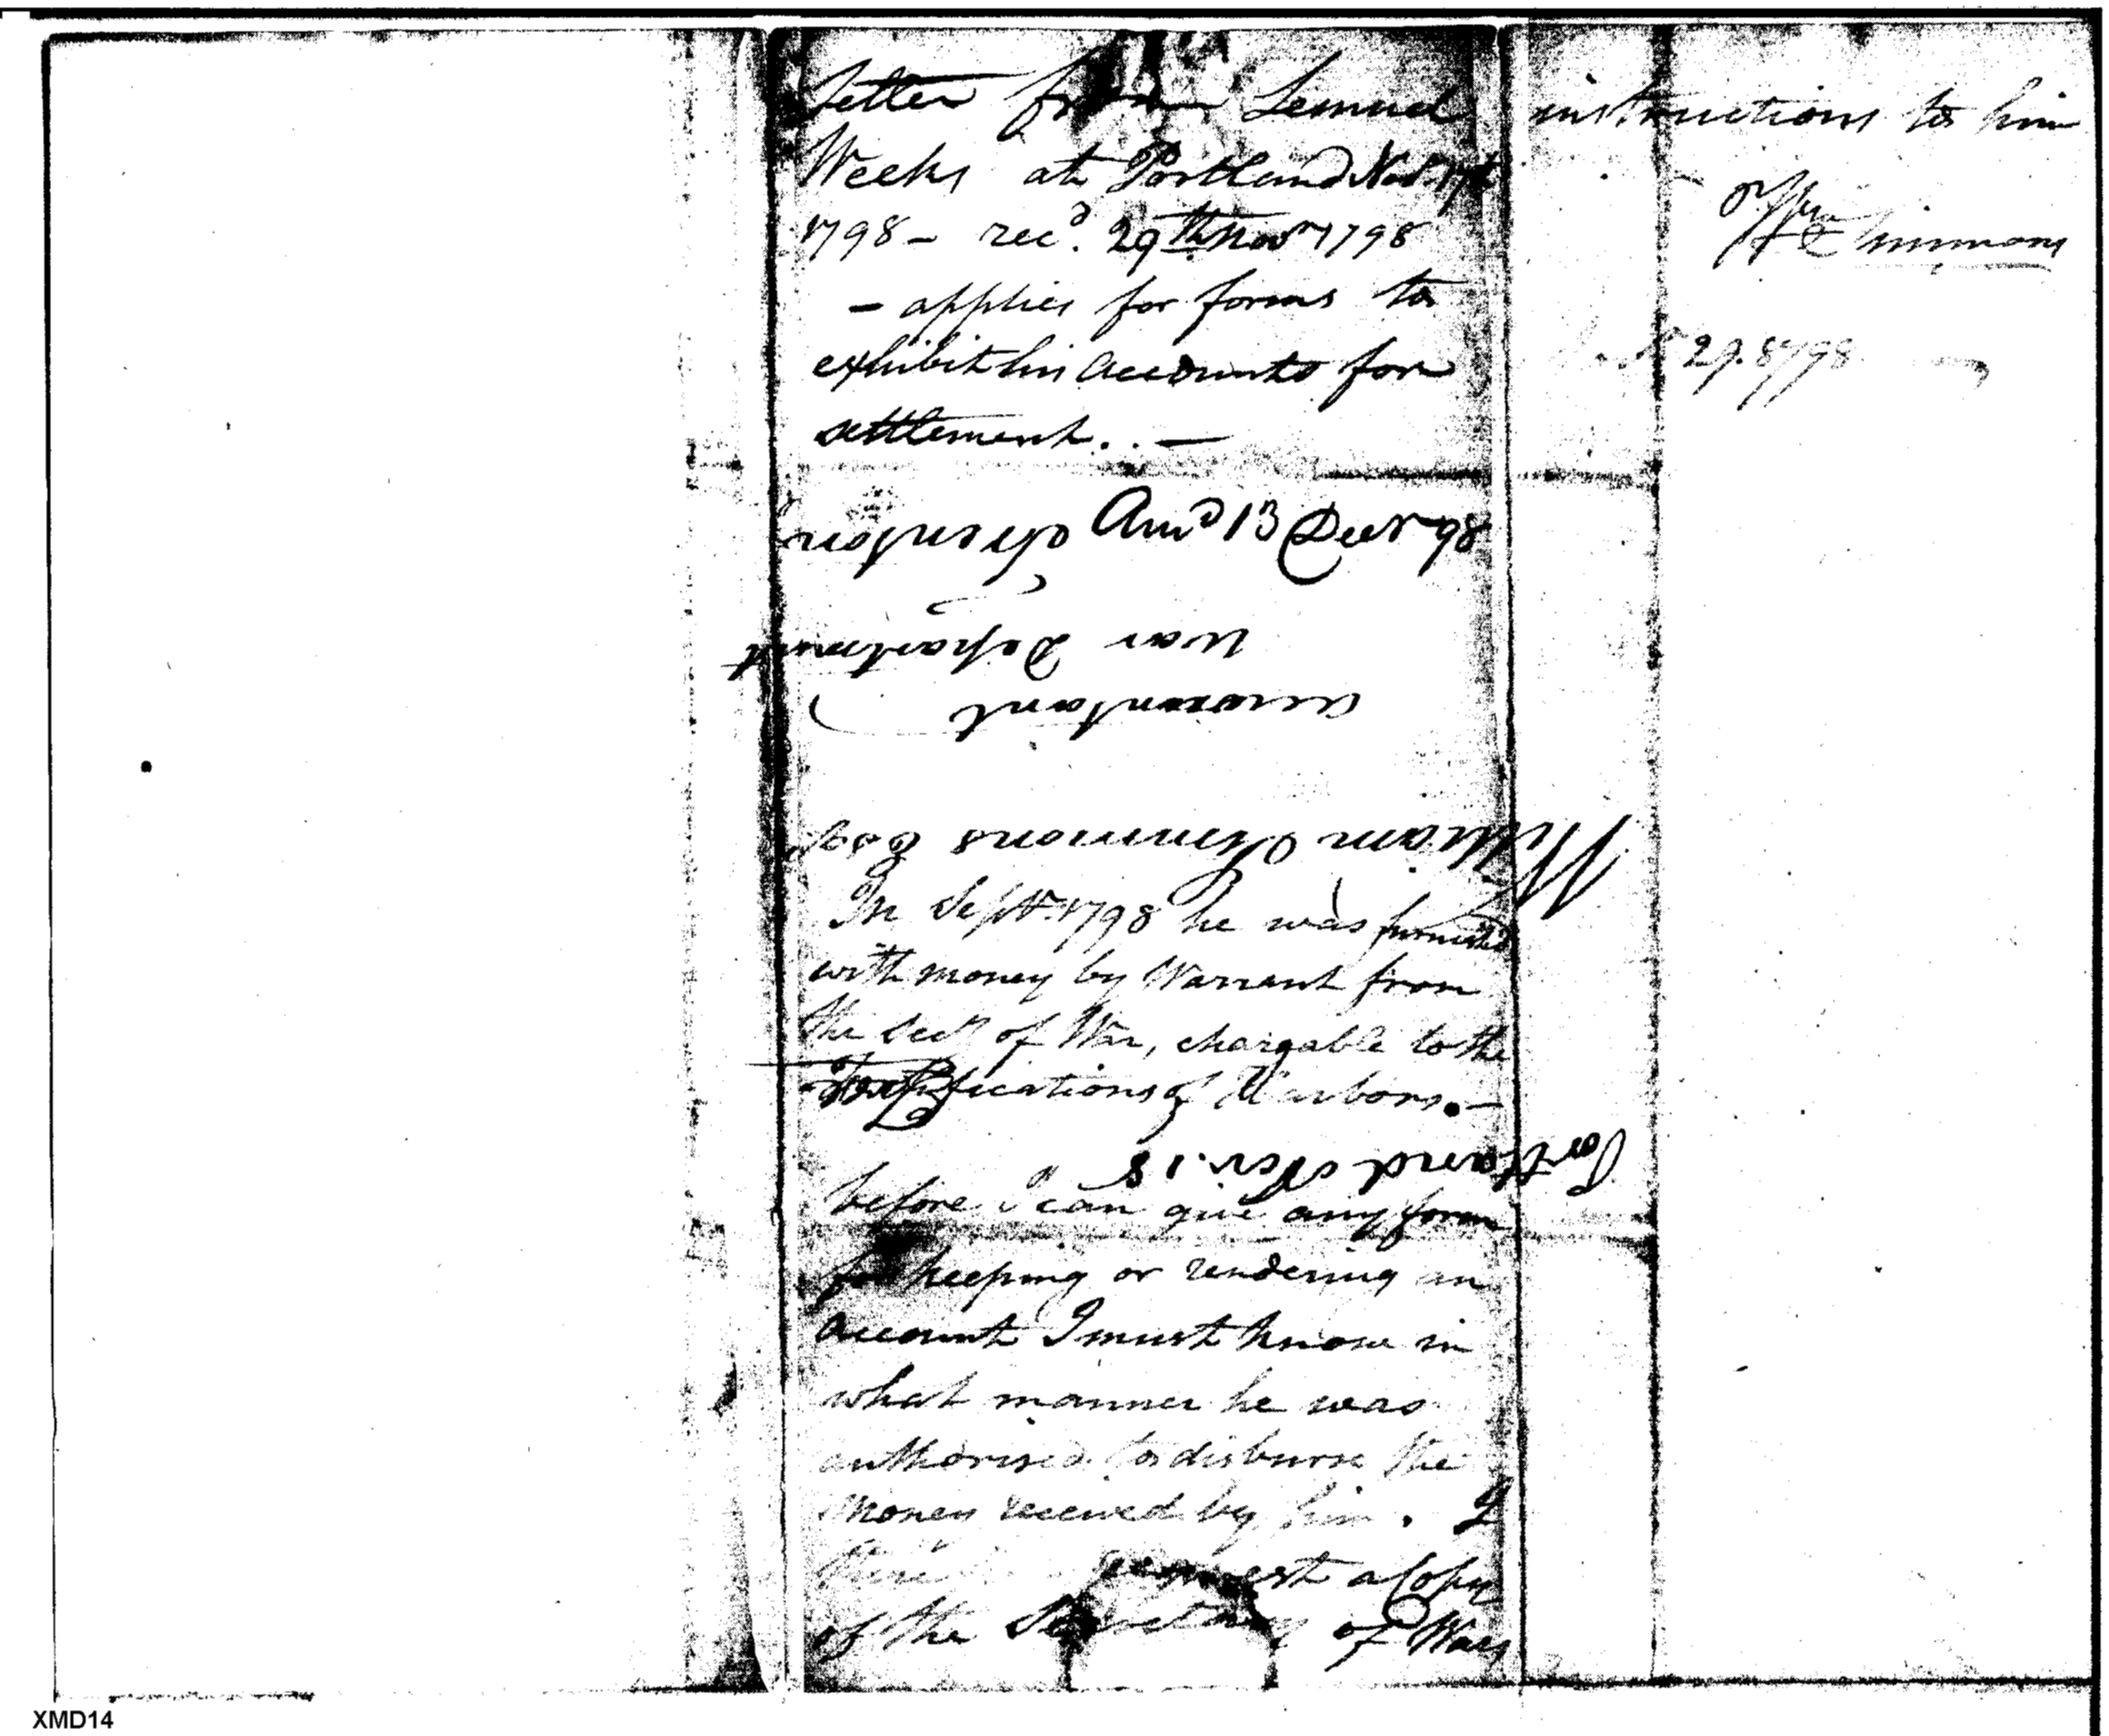 Letter from Lemuel
Weeks at Portland Nov. 17th
1798 - recd. 29th Nov 1798
- applies for forms to
exhibit his accounts for
settlement. . —
Ansd 13 Decr 98
Trenton
War Department
accountant
William Simmons Esq
In Septr. 1798 he was furnished
with money by Warrant from
the Secy of War, chargable to the
Fortifications of Harbors. —
Portland Nov. 18
before I can give any form
for keeping or rendering an
account I must know in
what manner he was
authorised to disburse the
money received by him. I
request a Copy
of the Secretary of Wars
instructions to him
Simmons
29. 1798
XMD14